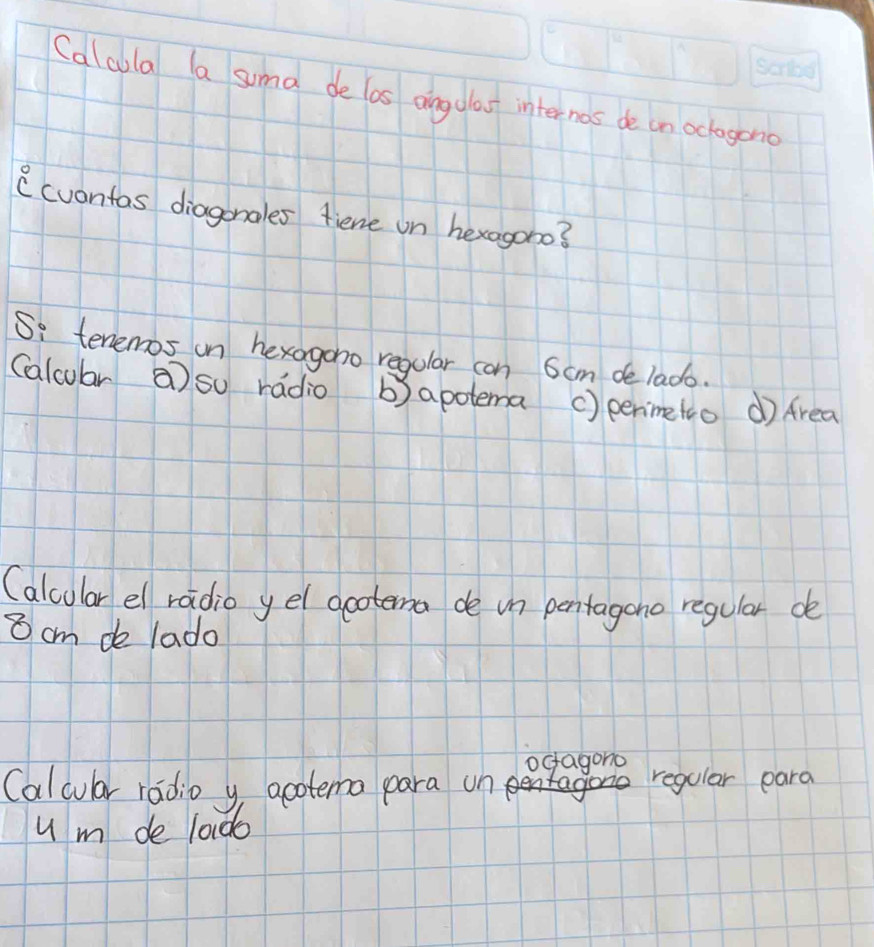 Scribe
Calcula la suma de los ángulos internos de un octagono
¿cuantas diagonales tiene un hexagono?
Si tenemos un hexagono regular con 6cm de lado.
Calcular a) su rádio b) apotema c) perimetro d) Área
Calcular el rádio y el apotema de un pentagono regular de
8 cm de lado
octagono
Calcular rádio y apotema para un pentagono regular para
4 m de lado